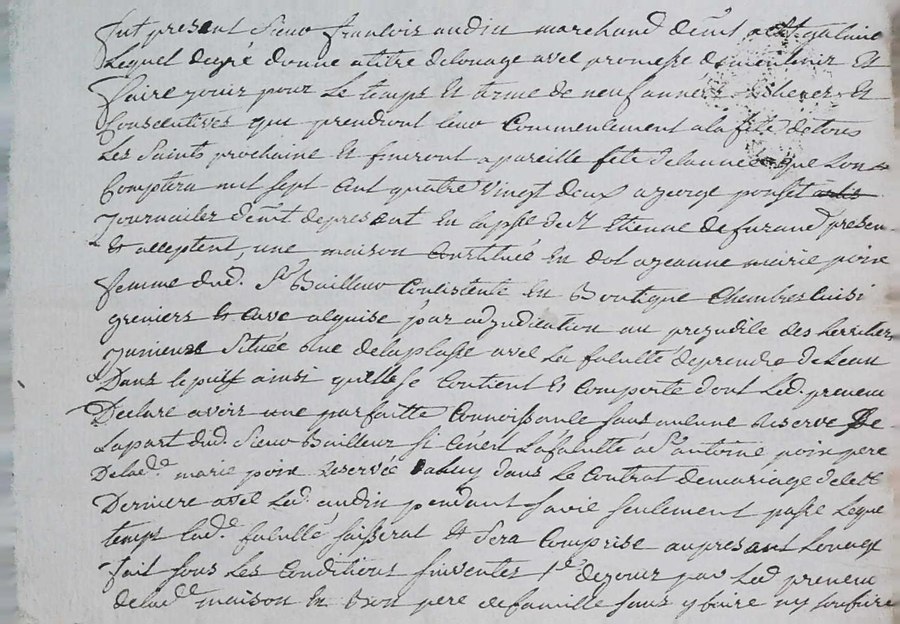 fut present Sieur francois audin marchand demt a St galmie
Lequel degré donne a titre delouage avec promesse demintenir Et
faire jouir pour Le temps Et terme de neuf années Et
Consecutives qui prendront leur Commencement a la fête detous
Les Saints prochaine Et finiront a pareille fête delannée que Lon
Comptera mil sept Cent quatre Vingt deux a george
journailer demt depresant En la psse de St Etienne defurand presen
Et acceptent, une maison Constituée En dot a jeanne marie poin
femme dud. Sr Bailleur Consistente En Boutique Chambres Cuisi
greniers Et Cave alquise par adjudication au prejudice des herritiers
Située Rue delaplasse avec La faculté deprendre deLeau
Dans le puis ainsi quelle se Contient Et Comporte dont Led. preneur
Declare avoir une parfaitte Connoissance sans aucune Reserve De
Lapart dud. Sieur Bailleur si Cenest Lafaculté a Sr antoine poin pere
Delade marie poin Reservée dans Le Contrat demariage delette
Derniere avec Led. audin pendant sa vie seulement passé Leque
temps lade faculté saisserat Et Sera Comprise aupresant Louage
fait sous Les Conditions suiventes 1e dejouir par Led preneur
delade maison En Bon pere defamille sans y faire ny soufrire